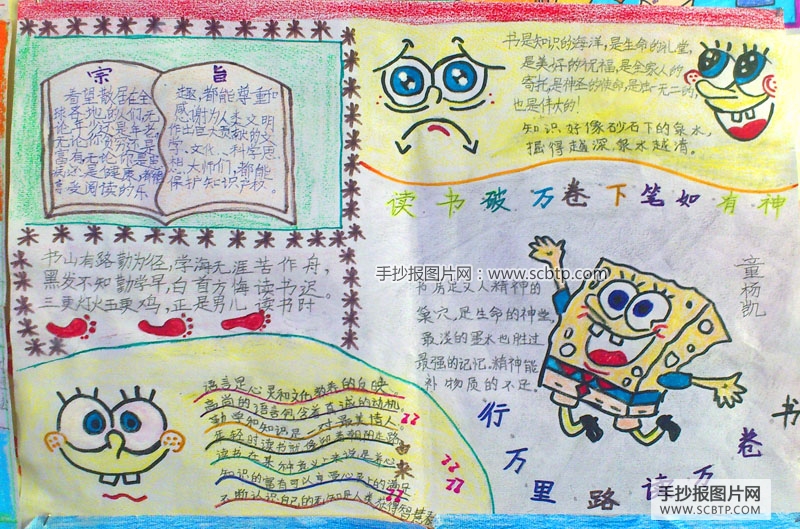 宗 旨
希望散居在全
球各地的人们无
论年少还是年老,
无论你贫穷还是
富有无论你是患
病还是健康,都能
享受阅读的乐
趣,都能尊重和
感谢为人类文明
作出巨大贡献的文
学、文化、科学思
想大师们,都能
保护知识产权。
书是知识的海洋,是生命的礼堂,
是美好的祝福,是全家人的
寄托,是神圣的使命,是独一无二的
也是伟大的!
知识好像砂石下的泉水,
掘得越深,泉水越清。
读书破万卷下笔如有神
书山有路勤为径,学海无涯苦作舟,
黑发不知勤学早,白首方悔读书迟。
三更灯火五更鸡,正是男儿读书时
手抄报图片网:www.scbtp.com
童杨凯
书房是文人精神的
巢穴,是生命的神坐,
最淡的墨水也胜过
最强的记忆,精神能
补物质的不足。
语言是心灵和文化教养的
高尚的语言包含着真诚的动机。
读书在某种意义上说是
知识的富有可以享受心灵上的满足
不断认识自己的无知是人类获得智慧
行万里路读万卷书
手抄报图片网
WWW.SCBTP.COM